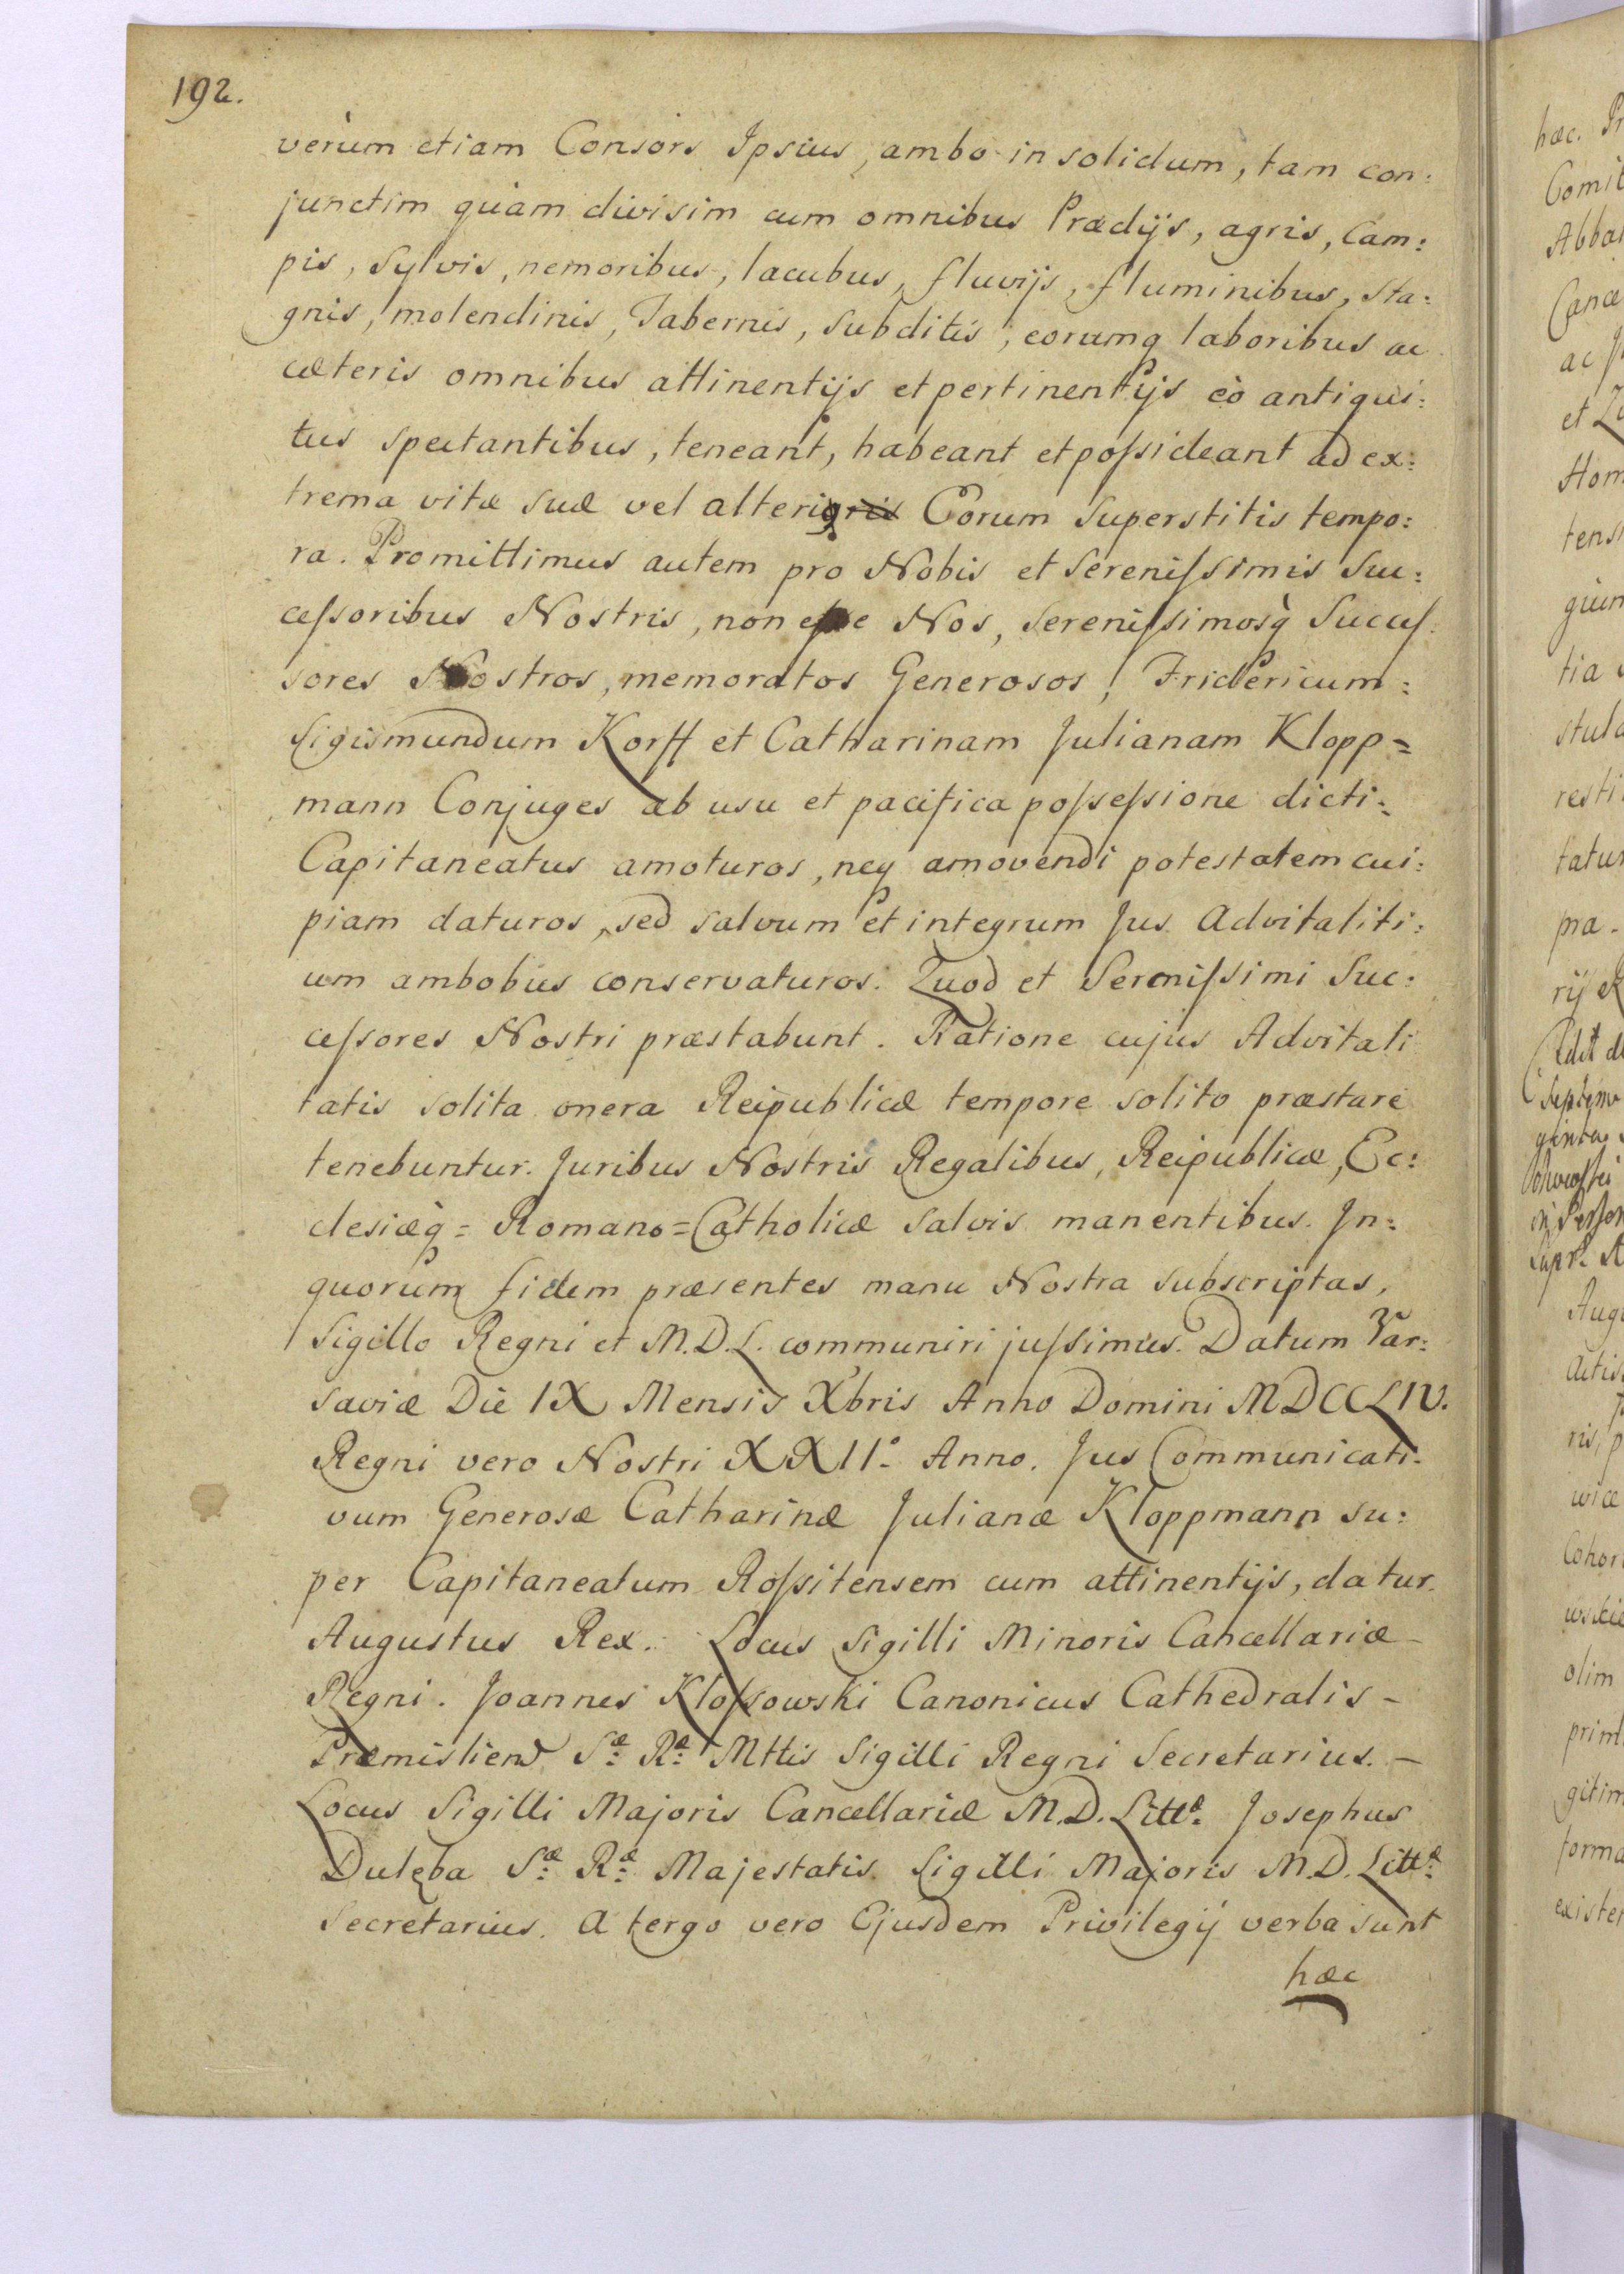 192.
verùm etiam Consors Ipsius, ambo in solidum, tam con:
junctim quàm divisim cum omnibus Prædijs, agris, Cam:
pis, Sylvis, nemoribus, lacubus, fluvijs, fluminibus, sta:
gnis, molendinis, Tabernis, Subditis, eorumq laboribus ac
cæteris omnibus attinentijs et pertinentijs eò antiqui:
tus spectantibus, teneant, habeant et poſsideant ad ex:
trema vitæ suæ vel alterius Eorum Superstitis tempo:
ra. Promittimus autem pro Nobis et Sereniſsimis Suc:
ceſsoribus Nostris, non eſse Nos, Sereniſsimosq̀ Succeſ:
sores Nostros, memoratos Generosos, Fridericum:
Sigismundum Korff et Catharinam Julianam Klopp=
mann Conjuges ab usu et pacifica poſseſsione dicti:
Capitaneatus amoturos, neq amovendi potestatem cui:
piam daturos, sed salvum et integrum Jus Advitaliti:
um ambobus conservaturos. Quod et Sereniſsimi Suc:
ceſsores Nostri præstabunt. Ratione cujus Advitali
tatis solita onera Reipublicæ tempore solito præstare
tenebuntur. Juribus Nostris Regalibus, Reipublicæ, Ec:
clesiæq̀ = Romano=Catholicæ salvis manentibus. Jn:
quorum fidem præsentes manu Nostra subscriptas,
Sigillo Regni et M.D.L. communiri juſsimus. Datum Var:
saviæ Die IX Mensis Xbris Anno Domini MDCCLIV.
Regni vero Nostri XXII.º Anno. Jus Communicati:
vum Generosæ Catharinæ Julianæ Kloppmann su:
per Capitaneatum Roſsitensem cum attinentijs, datur.
Augustus Rex. Locus Sigilli Minoris Cancellariæ
Regni. Joannes Kloſsowski Canonicus Cathedralis -
Præmislien Sæ Ræ Mttis Sigilli Regni Secretarius. -
Locus Sigilli Majoris Cancellariæ M.D. Littæ Josephus
Dulęba Sæ Ræ Majestatis Sigilli Majoris M.D. Littæ
Secretarius. A tergo vero Ejusdem Privilegij verba sunt
hæc